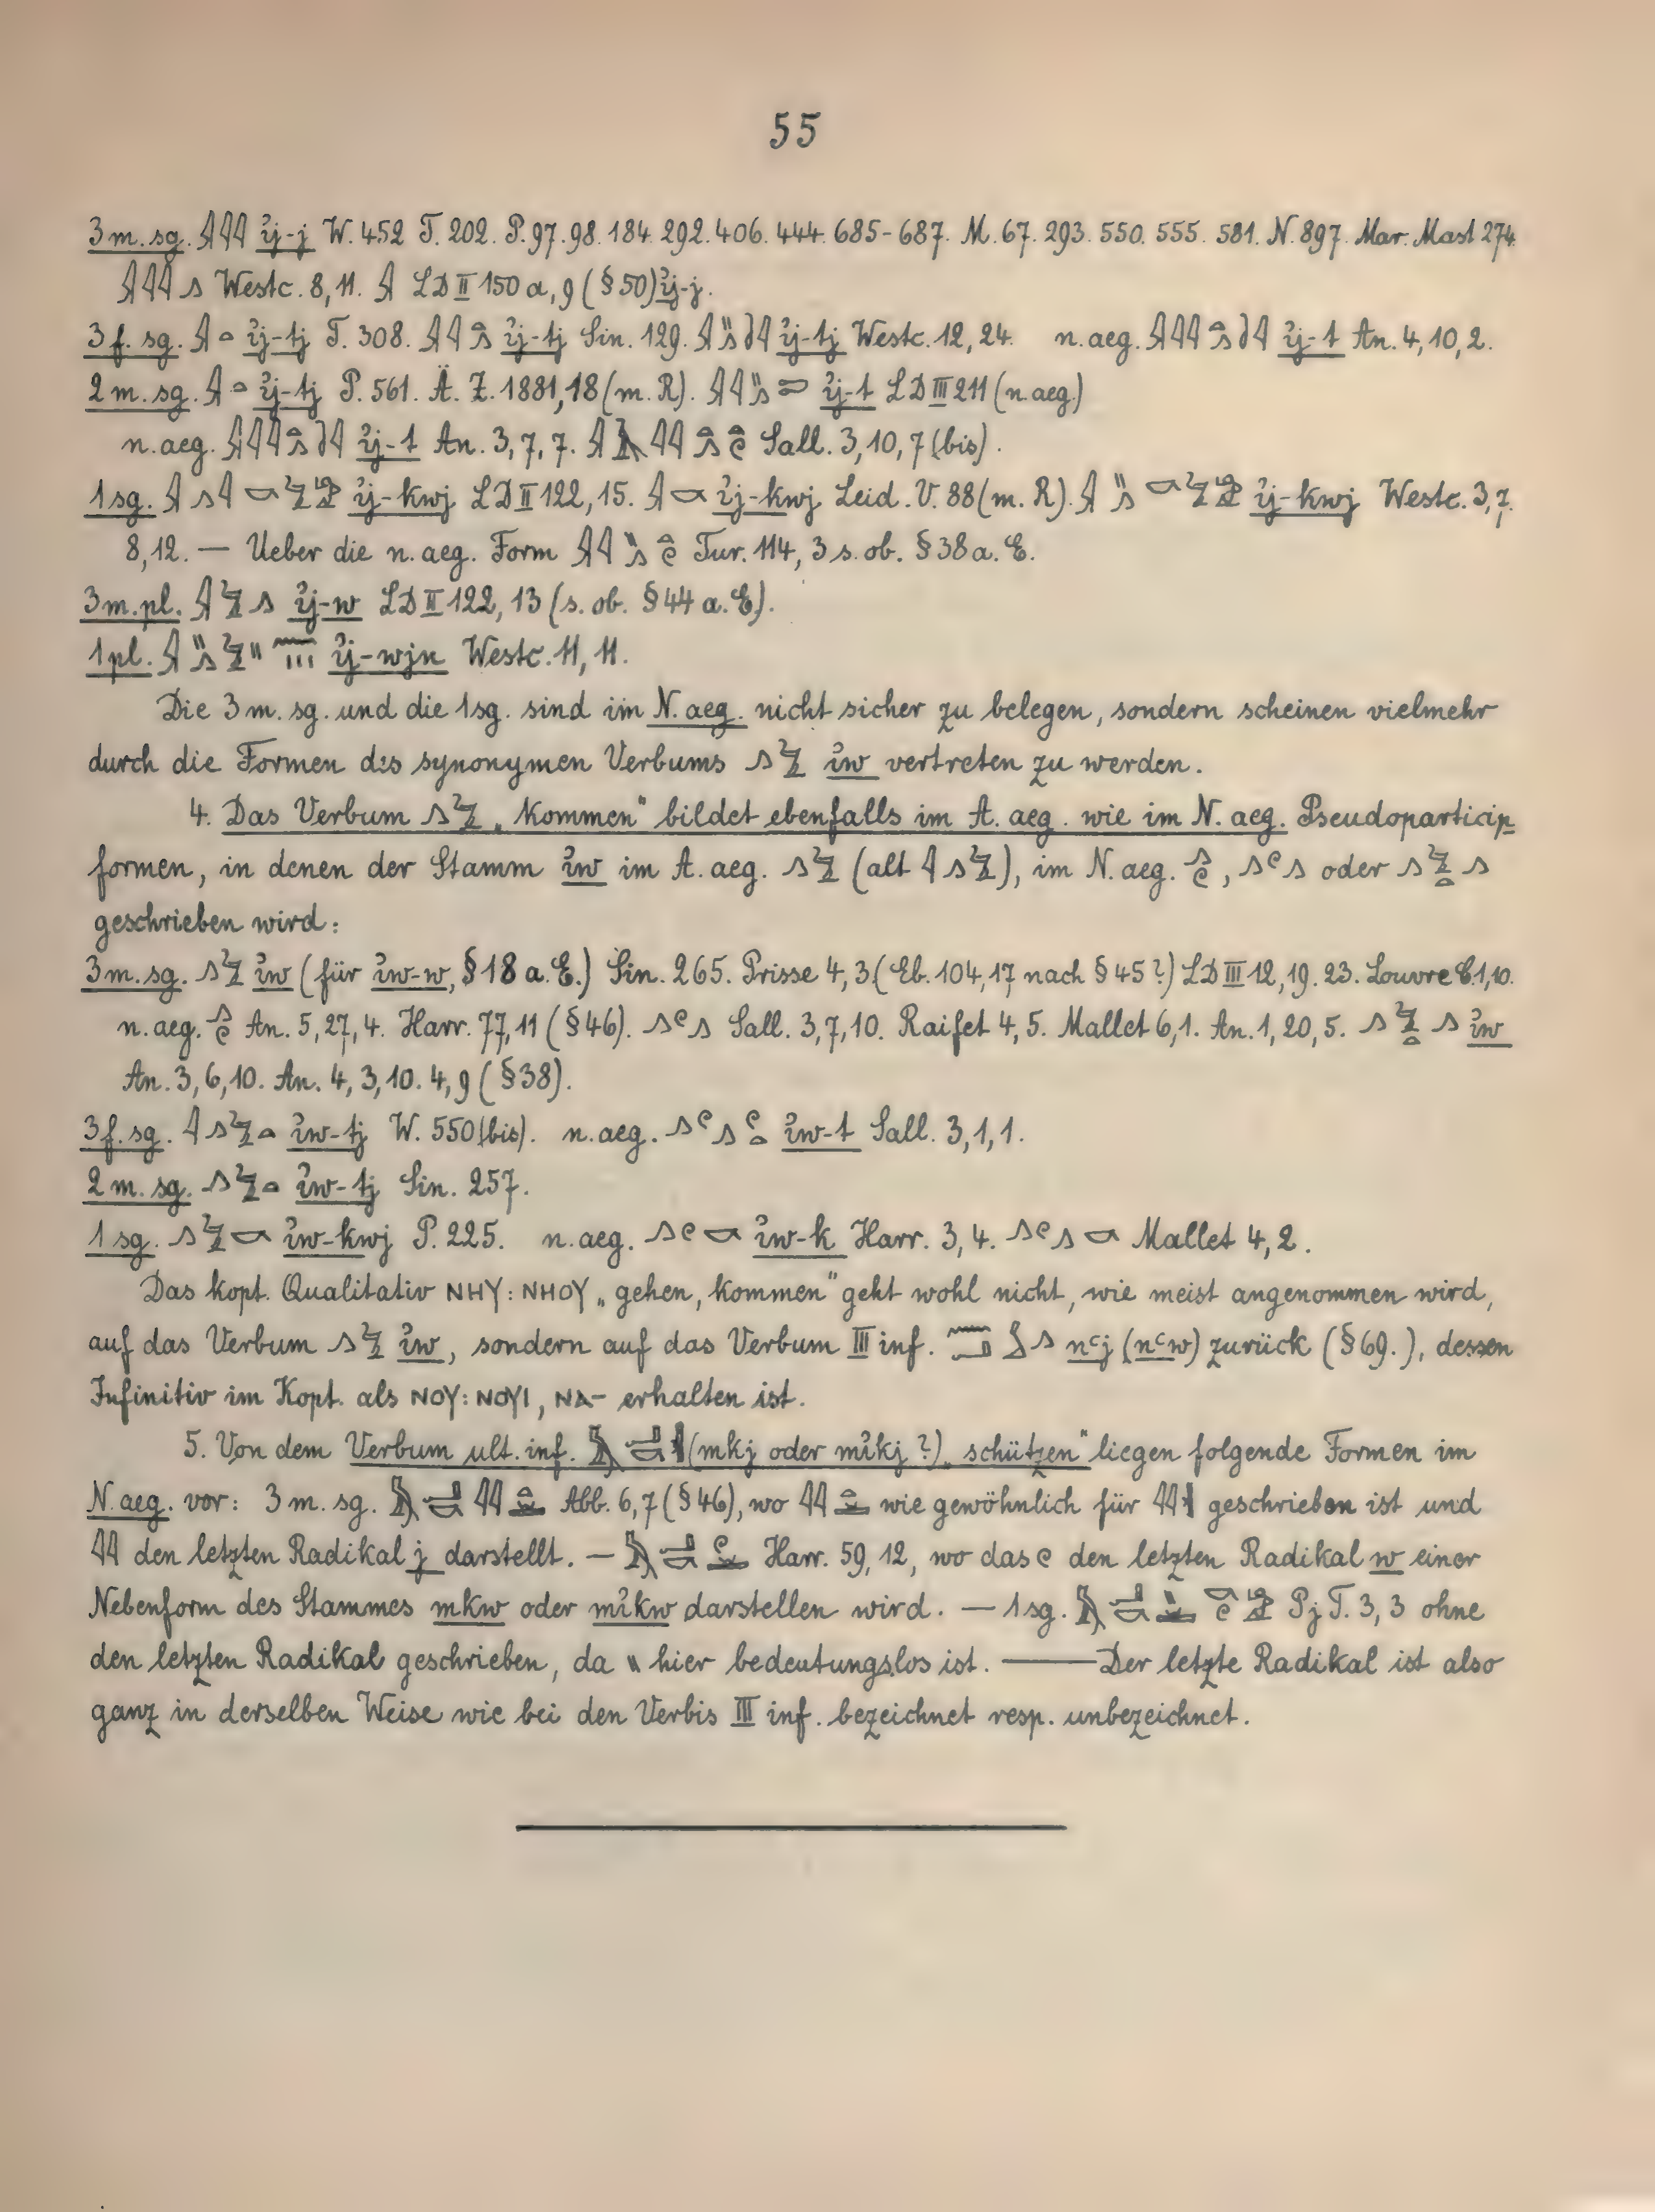 55
3 m. sg. 𓇍𓇋𓇋 ı͗j-j W. 452 T. 202. P. 97. 98. 184. 292. 406. 444. 685-687. M. 67. 293. 550. 555. 581. N. 897. Mar. Mast 274.
𓇍𓇋𓇋𓂻 Westc. 8, 11. 𓇍 LD II 150 a, 9 (§ 50) ı͗j-j.
3 f. sg. 𓇍𓏏 ı͗j-tj T. 308. ı͗j-tj Sin. 129. ı͗j-tj Westc. 12, 24. n. aeg. ı͗j-t An. 4, 10, 2.
2 m. sg. 𓇍𓏏 ı͗j-tj P. 561. Ä. Z. 1881, 18 (m. R). ı͗j-t LD III 211 (n. aeg.)
n. aeg. ı͗j-t An. 3, 7, 7. Sall. 3, 10, 7 (bis).
1 sg. ı͗j-kwj LD II 122, 15. 𓇍𓎡 ı͗j-kwj Leid. V. 88 (m. R). ı͗j-kwj Westc. 3, 7.
8, 12. — Ueber die n. aeg. Form Tur. 114, 3 s. ob. § 38 a. E.
3 m. pl. 𓇍𓅱𓂻 ı͗j-w LD II 122, 13 (s. ob. § 44 a. E).
1 pl. ı͗j-wjn Westc. 11, 11.
Die 3 m. sg. und die 1 sg. sind im N. aeg. nicht sicher zu belegen, sondern scheinen vielmehr
durch die Formen des synonymen Verbums 𓂻𓅱 ı͗w vertreten zu werden.
4. Das Verbum 𓂻𓅱 „kommen" bildet ebenfalls im A. aeg. wie im N. aeg. Pseudoparticip
formen, in denen der Stamm ı͗w im A. aeg. 𓂻𓅱 (alt 𓇋𓂻𓅱), im N. aeg. 𓂻𓏲, 𓂻𓏲𓂻 oder 𓂻𓅱𓏏𓂻
geschrieben wird:
3 m. sg. 𓂻𓅱 ı͗w (für ı͗w-w, § 18 a. E.) Sin. 265. Prisse 4, 3 (Eb. 104, 17 nach § 45?) LD III 12, 19. 23. Louvre C. 1, 10.
n. aeg. 𓂻𓏲 An. 5, 27, 4. Harr. 77, 11 (§ 46). 𓂻𓏲𓂻 Sall. 3, 7, 10. Raifet 4, 5. Mallet 6, 1. An. 1, 20, 5. 𓂻𓅱𓏏𓂻 ı͗w
An. 3, 6, 10. An. 4, 3, 10. 4, 9 (§ 38).
3 f. sg. 𓇋𓂻𓅱𓏏 ı͗w-tj W. 550 (bis). n. aeg. 𓂻𓏲𓂻𓏲𓏏 ı͗w-t Sall. 3, 1, 1.
2 m. sg. 𓂻𓅱𓏏 ı͗w-tj Sin. 257.
1 sg. 𓂻𓅱𓎡 ı͗w-kwj P. 225. n. aeg. 𓂻𓏲𓎡 ı͗w-k Harr. 3, 4. 𓂻𓏲𓂻𓎡 Mallet 4, 2.
Das kopt. Qualitativ ⲚⲎⲨ : ⲚⲎⲞⲨ „gehen, kommen" geht wohl nicht, wie meist angenommen wird,
auf das Verbum 𓂻𓅱 ı͗w, sondern auf das Verbum III inf. nꜥj (nꜥw) zurück (§ 69.), dessen
Infinitiv im Kopt. als ⲚⲞⲨ : ⲚⲞⲨⲒ, ⲚⲀ- erhalten ist.
5. Von dem Verbum ult. inf. (mkj oder mı͗kj ?) „schützen" liegen folgende Formen im
N. aeg. vor: 3 m. sg. Abb. 6, 7 (§ 46), wo wie gewöhnlich für geschrieben ist und
𓇋𓇋 den letzten Radikal j darstellt. — Harr. 59, 12, wo das 𓏲 den letzten Radikal w einer
Nebenform des Stammes mkw oder mı͗kw darstellen wird. — 1 sg. Pj T. 3, 3 ohne
den letzten Radikal geschrieben, da 𓏭 hier bedeutungslos ist. — Der letzte Radikal ist also
ganz in derselben Weise wie bei den Verbis III inf. bezeichnet resp. unbezeichnet.